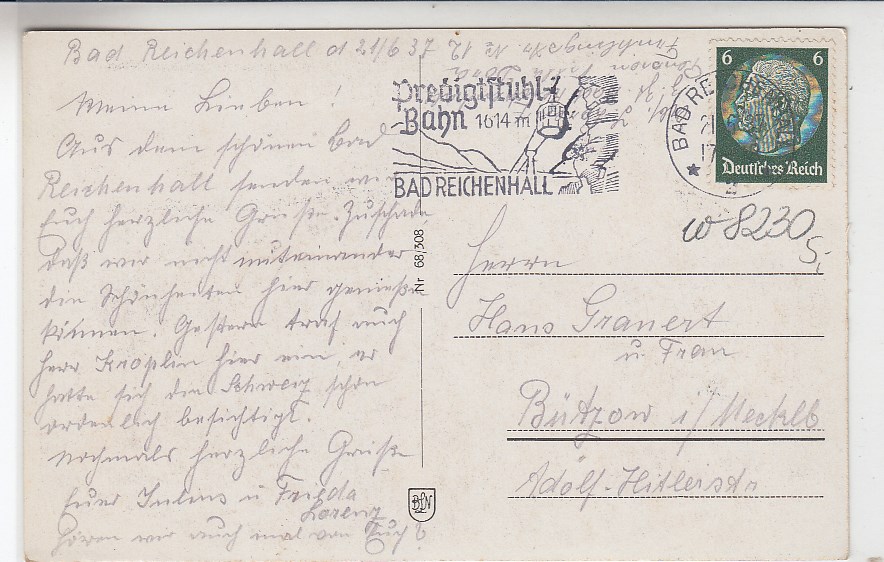 Bad Reichenhall d 21/6 37
Meine Lieben!
Aus dem schönen Bad
Reichenhall senden wir
Euch herzliche Grüße. Zuschade
daß wir nicht miteinander
die Schönheiten hier genießen
können. Gestern traf auch
Herr Kroplin hier ein, er
hatte sich die Schweiz schon
ordentlich besichtigt.
Nochmals herzliche Grüße
Euer Julius u Frieda
Lorenz
Hören wir auch mal von Euch?
Predigtstuhl-
Bahn 1614 m
BAD REICHENHALL
BAD REI
21
17
2
6 6
Deutsches Reich
w 8230
5,-
Nr 68/308
Herrn
Hans Granert
u. Frau
Bützow i/Mecklb
Adolf-Hitlerstr